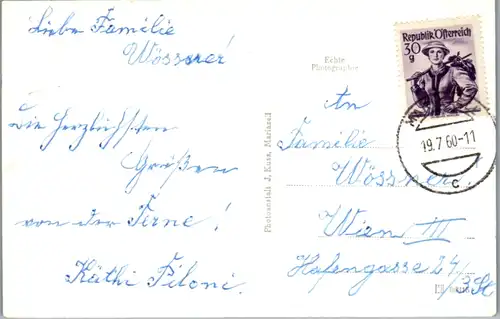 Liebe Familie
Wössner!
Die herzlichsten
Grüßen
von der Ferne!
Käthi Piloni.
Echte
Photographie
Photoanstalt J. Kuss, Mariazell
Republik Österreich
30
g
19.7.60-11
c
An
Familie
Wössner
Wien III
Hafengasse 24/
/3 St